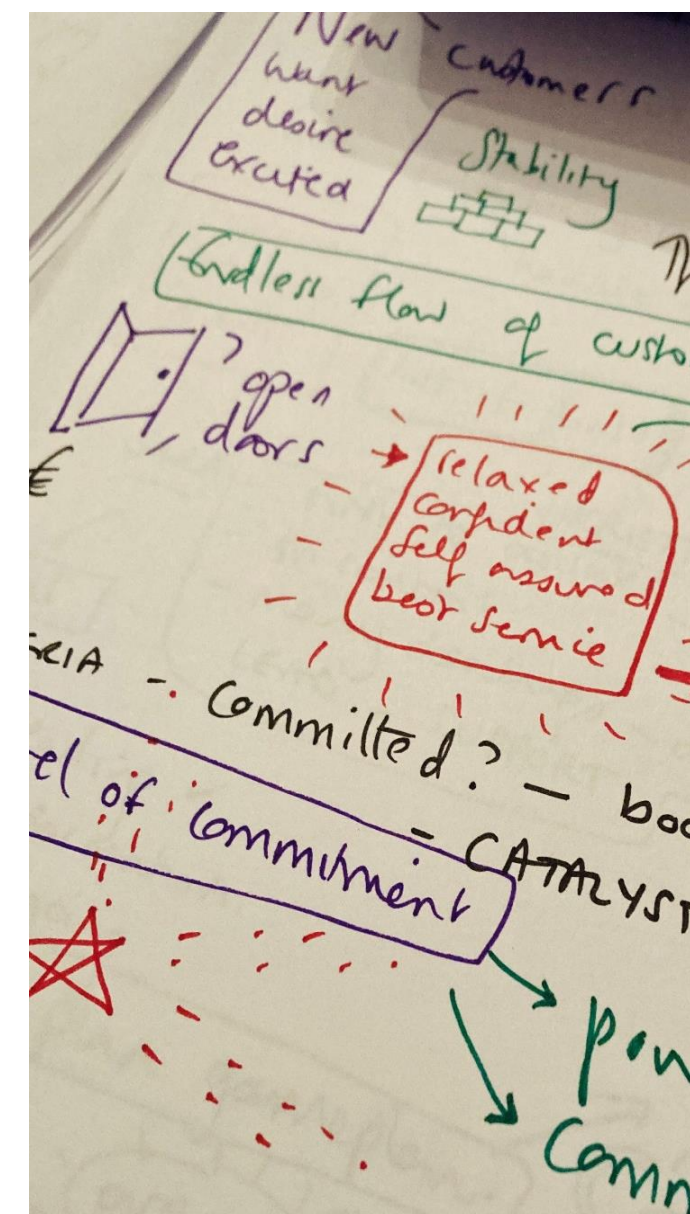 New customers
want
desire
excited
Stability
Endless flow of custo
open
doors
€
relaxed
confident
self assured
best service
- Committed? - boo
el of commitment
- CATALYST
pow
Comm